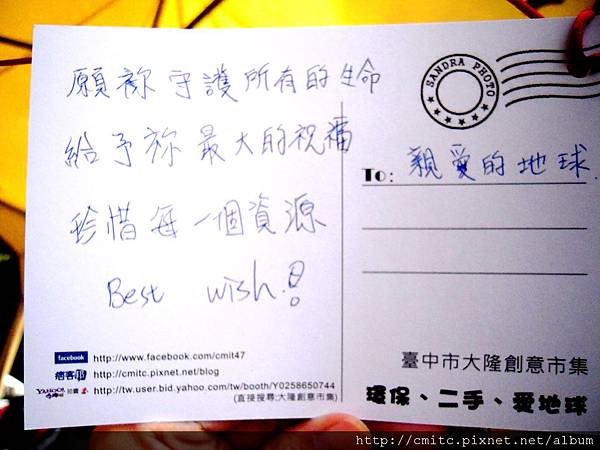 願祢守護所有的生命
給予祢最大的祝福
珍惜每一個資源
Best wish!
SANDRA PHOTO
To: 親愛的地球.
facebook http://www.facebook.com/cmit47
痞客邦 http://cmitc.pixnet.net/blog
YAHOO! 奇摩 拍賣 http://tw.user.bid.yahoo.com/tw/booth/Y0258650744
(直接搜尋:大隆創意市集)
臺中市大隆創意市集
環保、二手、愛地球
http://cmitc.pixnet.net/album